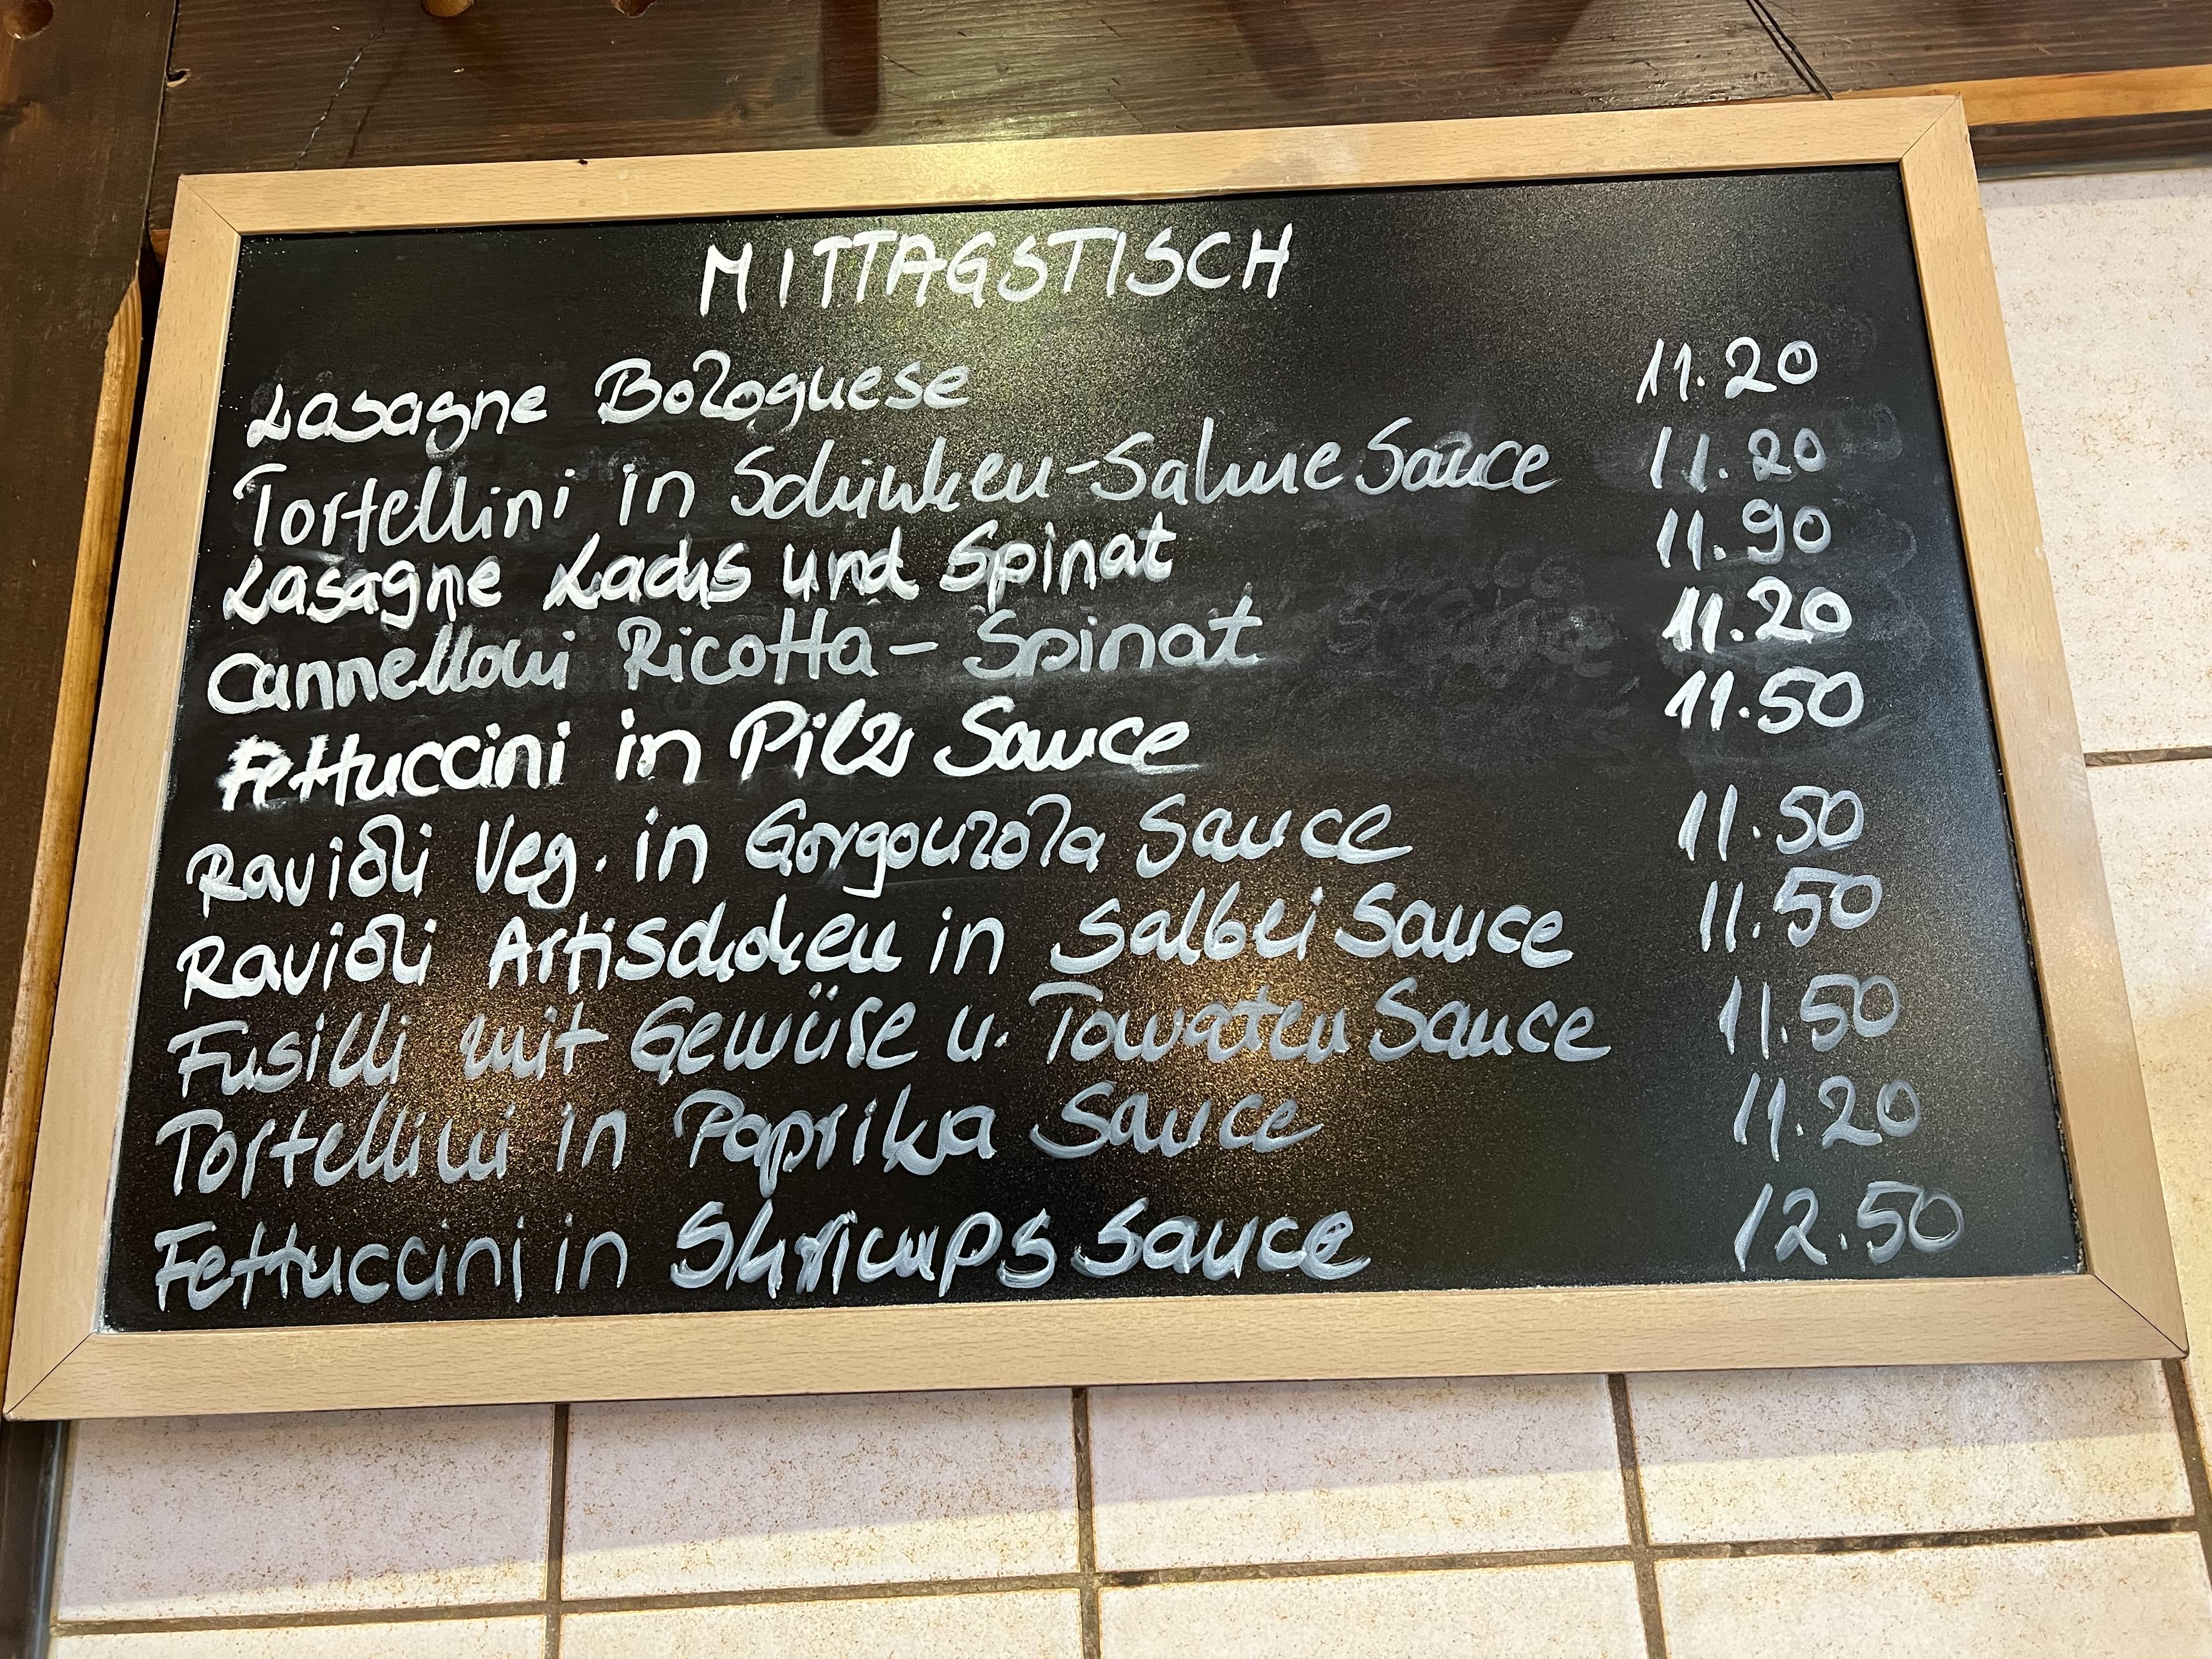 MITTAGSTISCH
Lasagne Bolognese 11.20
Tortellini in Schinken-Sahne Sauce 11.20
Lasagne Lachs und Spinat 11.90
Cannelloni Ricotta - Spinat 11.20
Fettuccini in Pilz Sauce 11.50
Ravioli Veg. in Gorgonzola Sauce 11.50
Ravioli Artischoken in Salbei Sauce 11.50
Fusilli mit Gemüse u. Tomaten Sauce 11.50
Tortellini in Paprika Sauce 11.20
Fettuccini in Shrimps Sauce 12.50